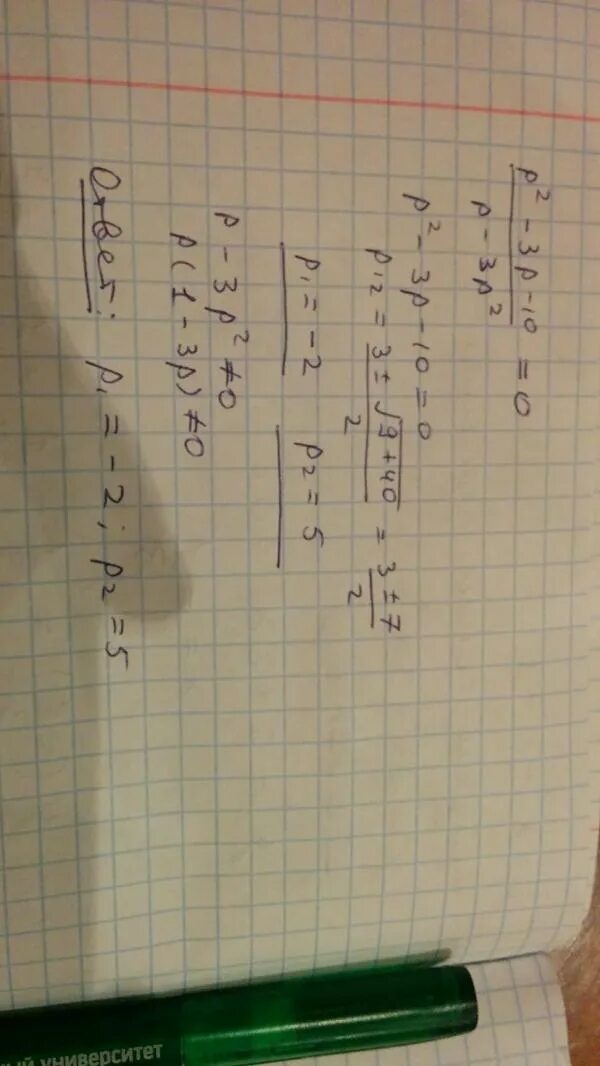 p² - 3p - 10 / p - 3p² = 0
p² - 3p - 10 = 0
p₁₂ = 3 ± √9 + 40 / 2 = 3 ± 7 / 2
p₁ = -2 p₂ = 5
p - 3p² ≠ 0
p(1 - 3p) ≠ 0
Ответ: p₁ = -2; p₂ = 5
университет